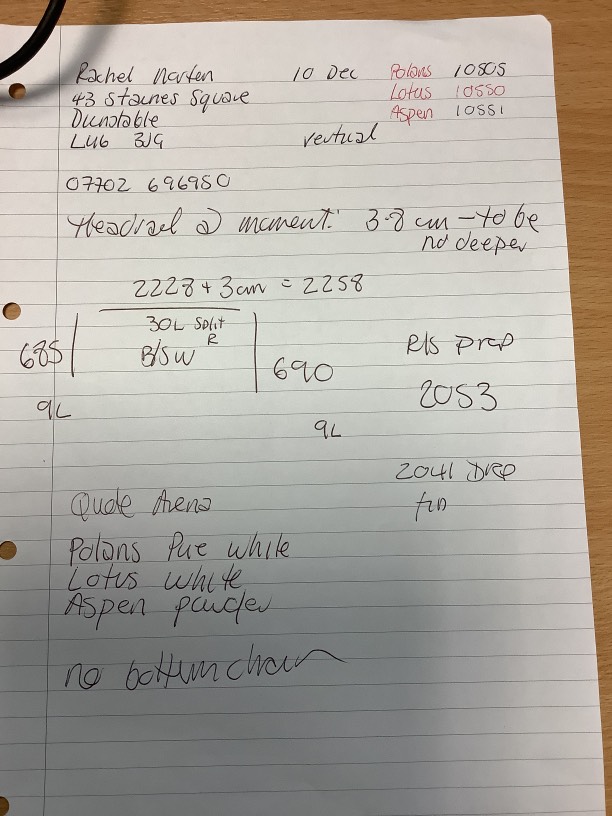 Rachel Norten 10 Dec Polans 10805
43 Staines Square Lotus 10550
Dunstable Aspen 10551
LU6 3JG vertical
07702 696950
Headrail @ moment: 3.8 cm - to be
no deeper
2228 + 3cm = 2258
30L Split
R
B/SW
685
690
R/S Drop
2053
9L
9L
2041 Drop
fin
Quote
Polans Pure white
Lotus white
Aspen powder
no bottom chain